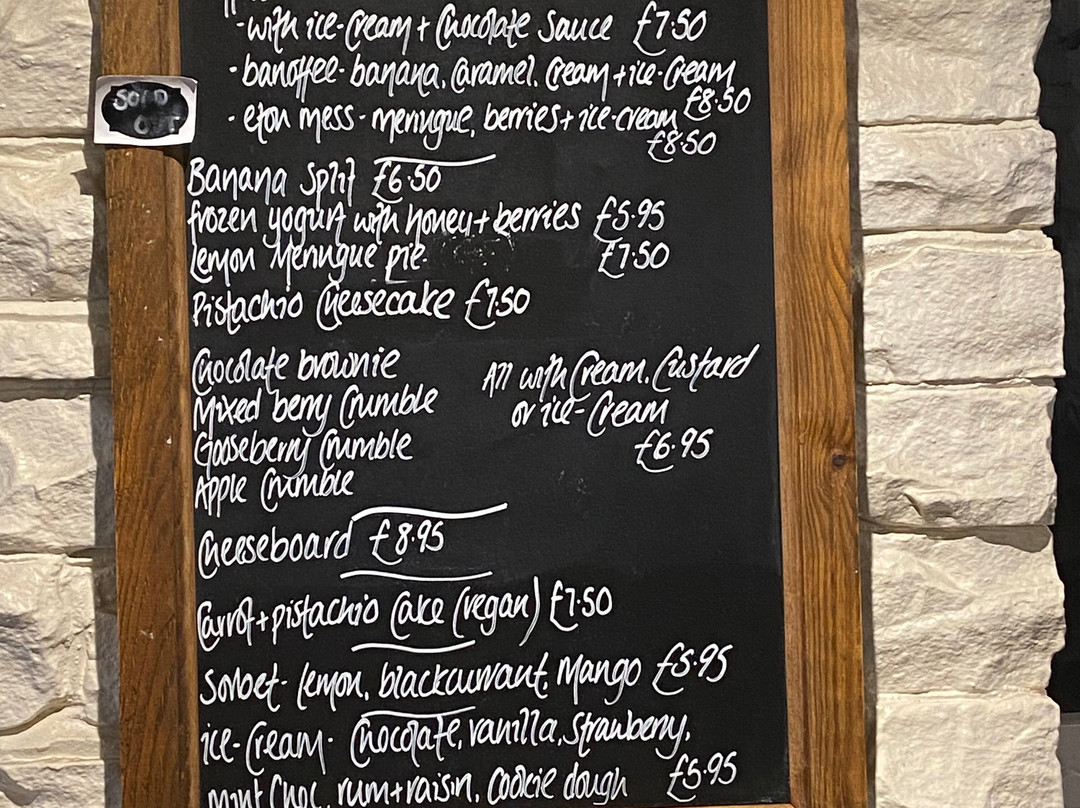 - with ice-cream + Chocolate Sauce £7.50
- banoffee - banana, Caramel, Cream + ice-Cream £8.50
SOLD OUT
- eton mess - meringue, berries + ice-cream £8.50
Banana Split £6.50
frozen yogurt with honey + berries £5.95
Lemon Meringue pie £7.50
Pistachio Cheesecake £7.50
Chocolate brownie
Mixed berry Crumble
Gooseberry Crumble
Apple Crumble
All with Cream, Custard
or ice-Cream
£6.95
Cheeseboard £8.95
Carrot + pistachio Cake (vegan) £7.50
Sorbet - lemon, blackcurrant, Mango £5.95
ice-Cream - Chocolate, vanilla, Strawberry,
Mint Choc, rum + raisin, Cookie dough £5.95